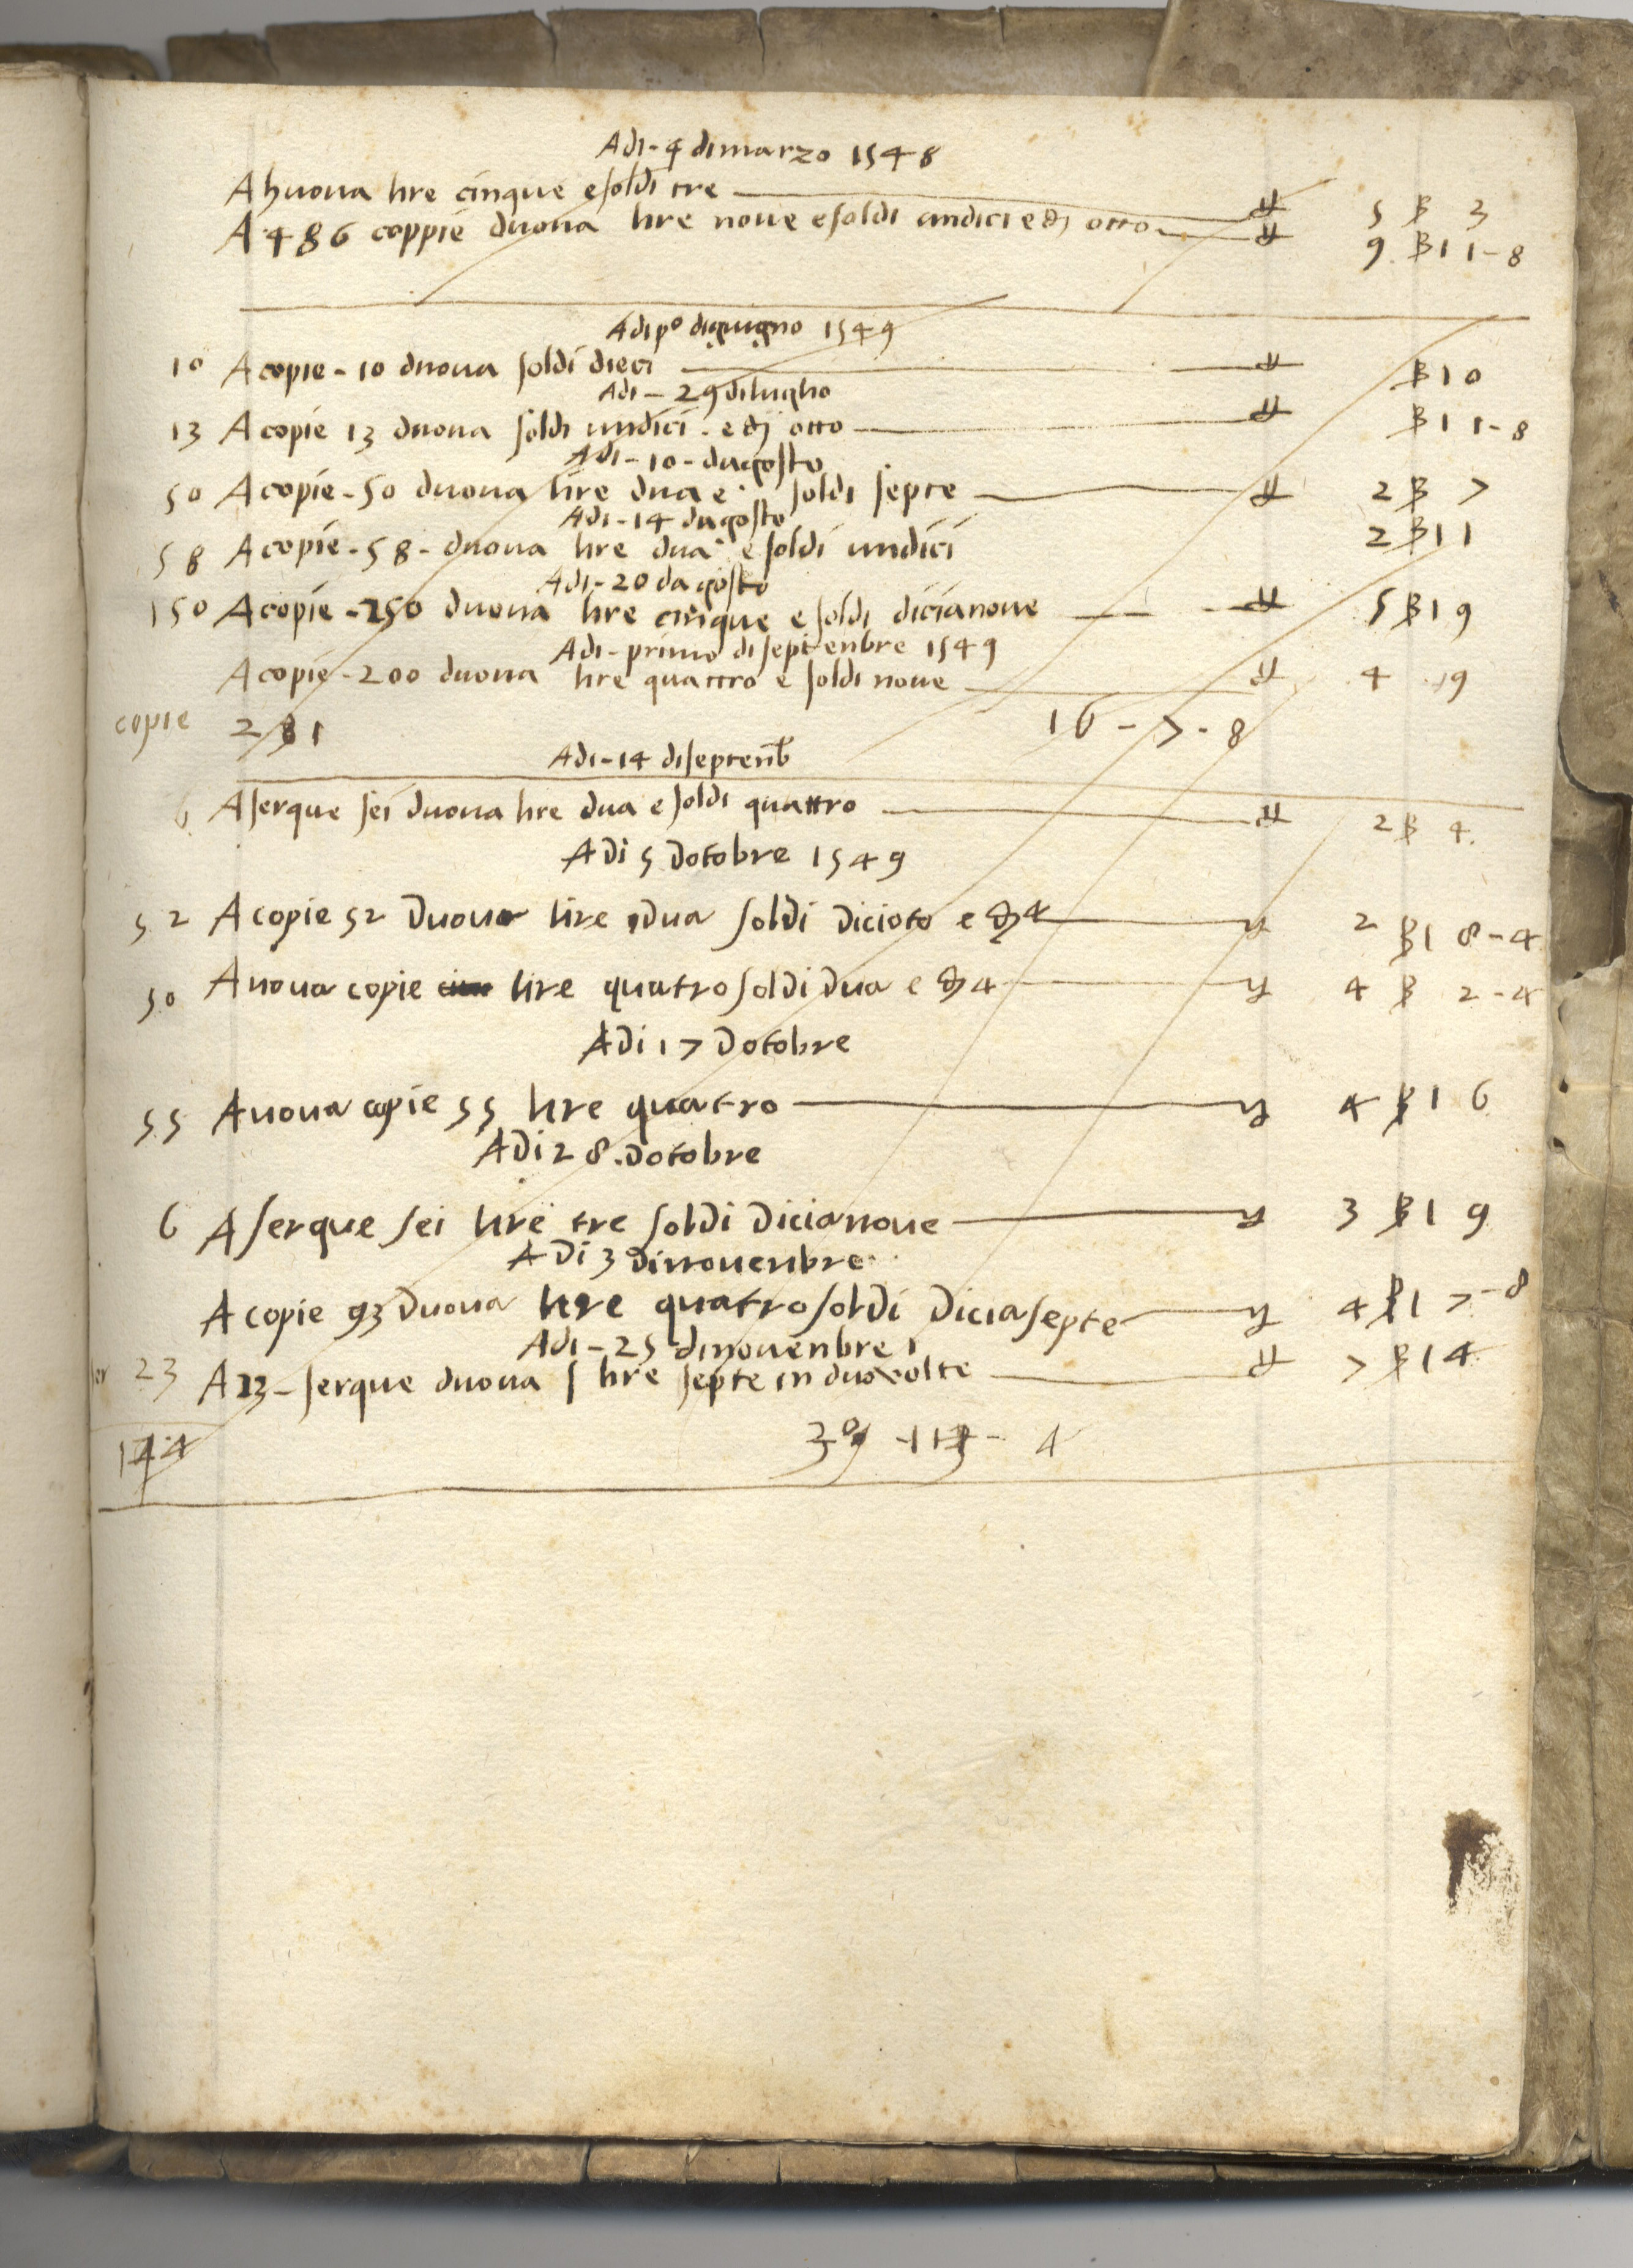 Adi - 4 di marzo 1548
A huoua lire cinque e soldi tre ₶ 5 ß 3
A 486 coppie duoua lire noue e soldi undici e d otto ₶ 9 ß 11 - 8
Adi po di giugno 1549
10 A copie - 10 duoua soldi dieci ₶ ß 10
Adi - 29 di luglio
13 A copie 13 duoua soldi undici - e d otto ₶ ß 11 - 8
Adi - 10 - dagosto
50 A copie - 50 duoua lire dua e soldi septe ₶ 2 ß 7
Adi - 14 dagosto
58 A copie - 58 - duoua lire dua e soldi undici 2 ß 11
Adi - 20 dagosto
150 A copie - 150 duoua lire cinque e soldi dicianoue ₶ 5 ß 19
Adi - primo di septenbre 1549
A copie - 200 duoua lire quattro e soldi noue ₶ 4 9
copie 281 16 - 7 - 8
Adi - 14 di septenb
6 A serque sei duoua lire dua e soldi quattro ₶ 2 ß 4
A Di 5 Dotobre 1549
52 A copie 52 Duoua lire Dua soldi Dicioto e d 4 ₶ 2 ß 18 - 4
50 A uoua copie lire quatro soldi Dua e d 4 ₶ 4 ß 2 - 4
A Di 17 Dotobre
55 A uoua copie 55 lire quatro ₶ 4 ß 16
A Di 28 Dotobre
6 A serque sei lire tre soldi Dicianoue ₶ 3 ß 19
A Di 3 Dinouenbre
A copie 93 Duoua lire quatro soldi Diciasepte ₶ 4 ß 17 - 8
Adi - 25 dinouenbre
23 A 23 - serque duoua lire septe in duo uolte ₶ 7 ß 14
144